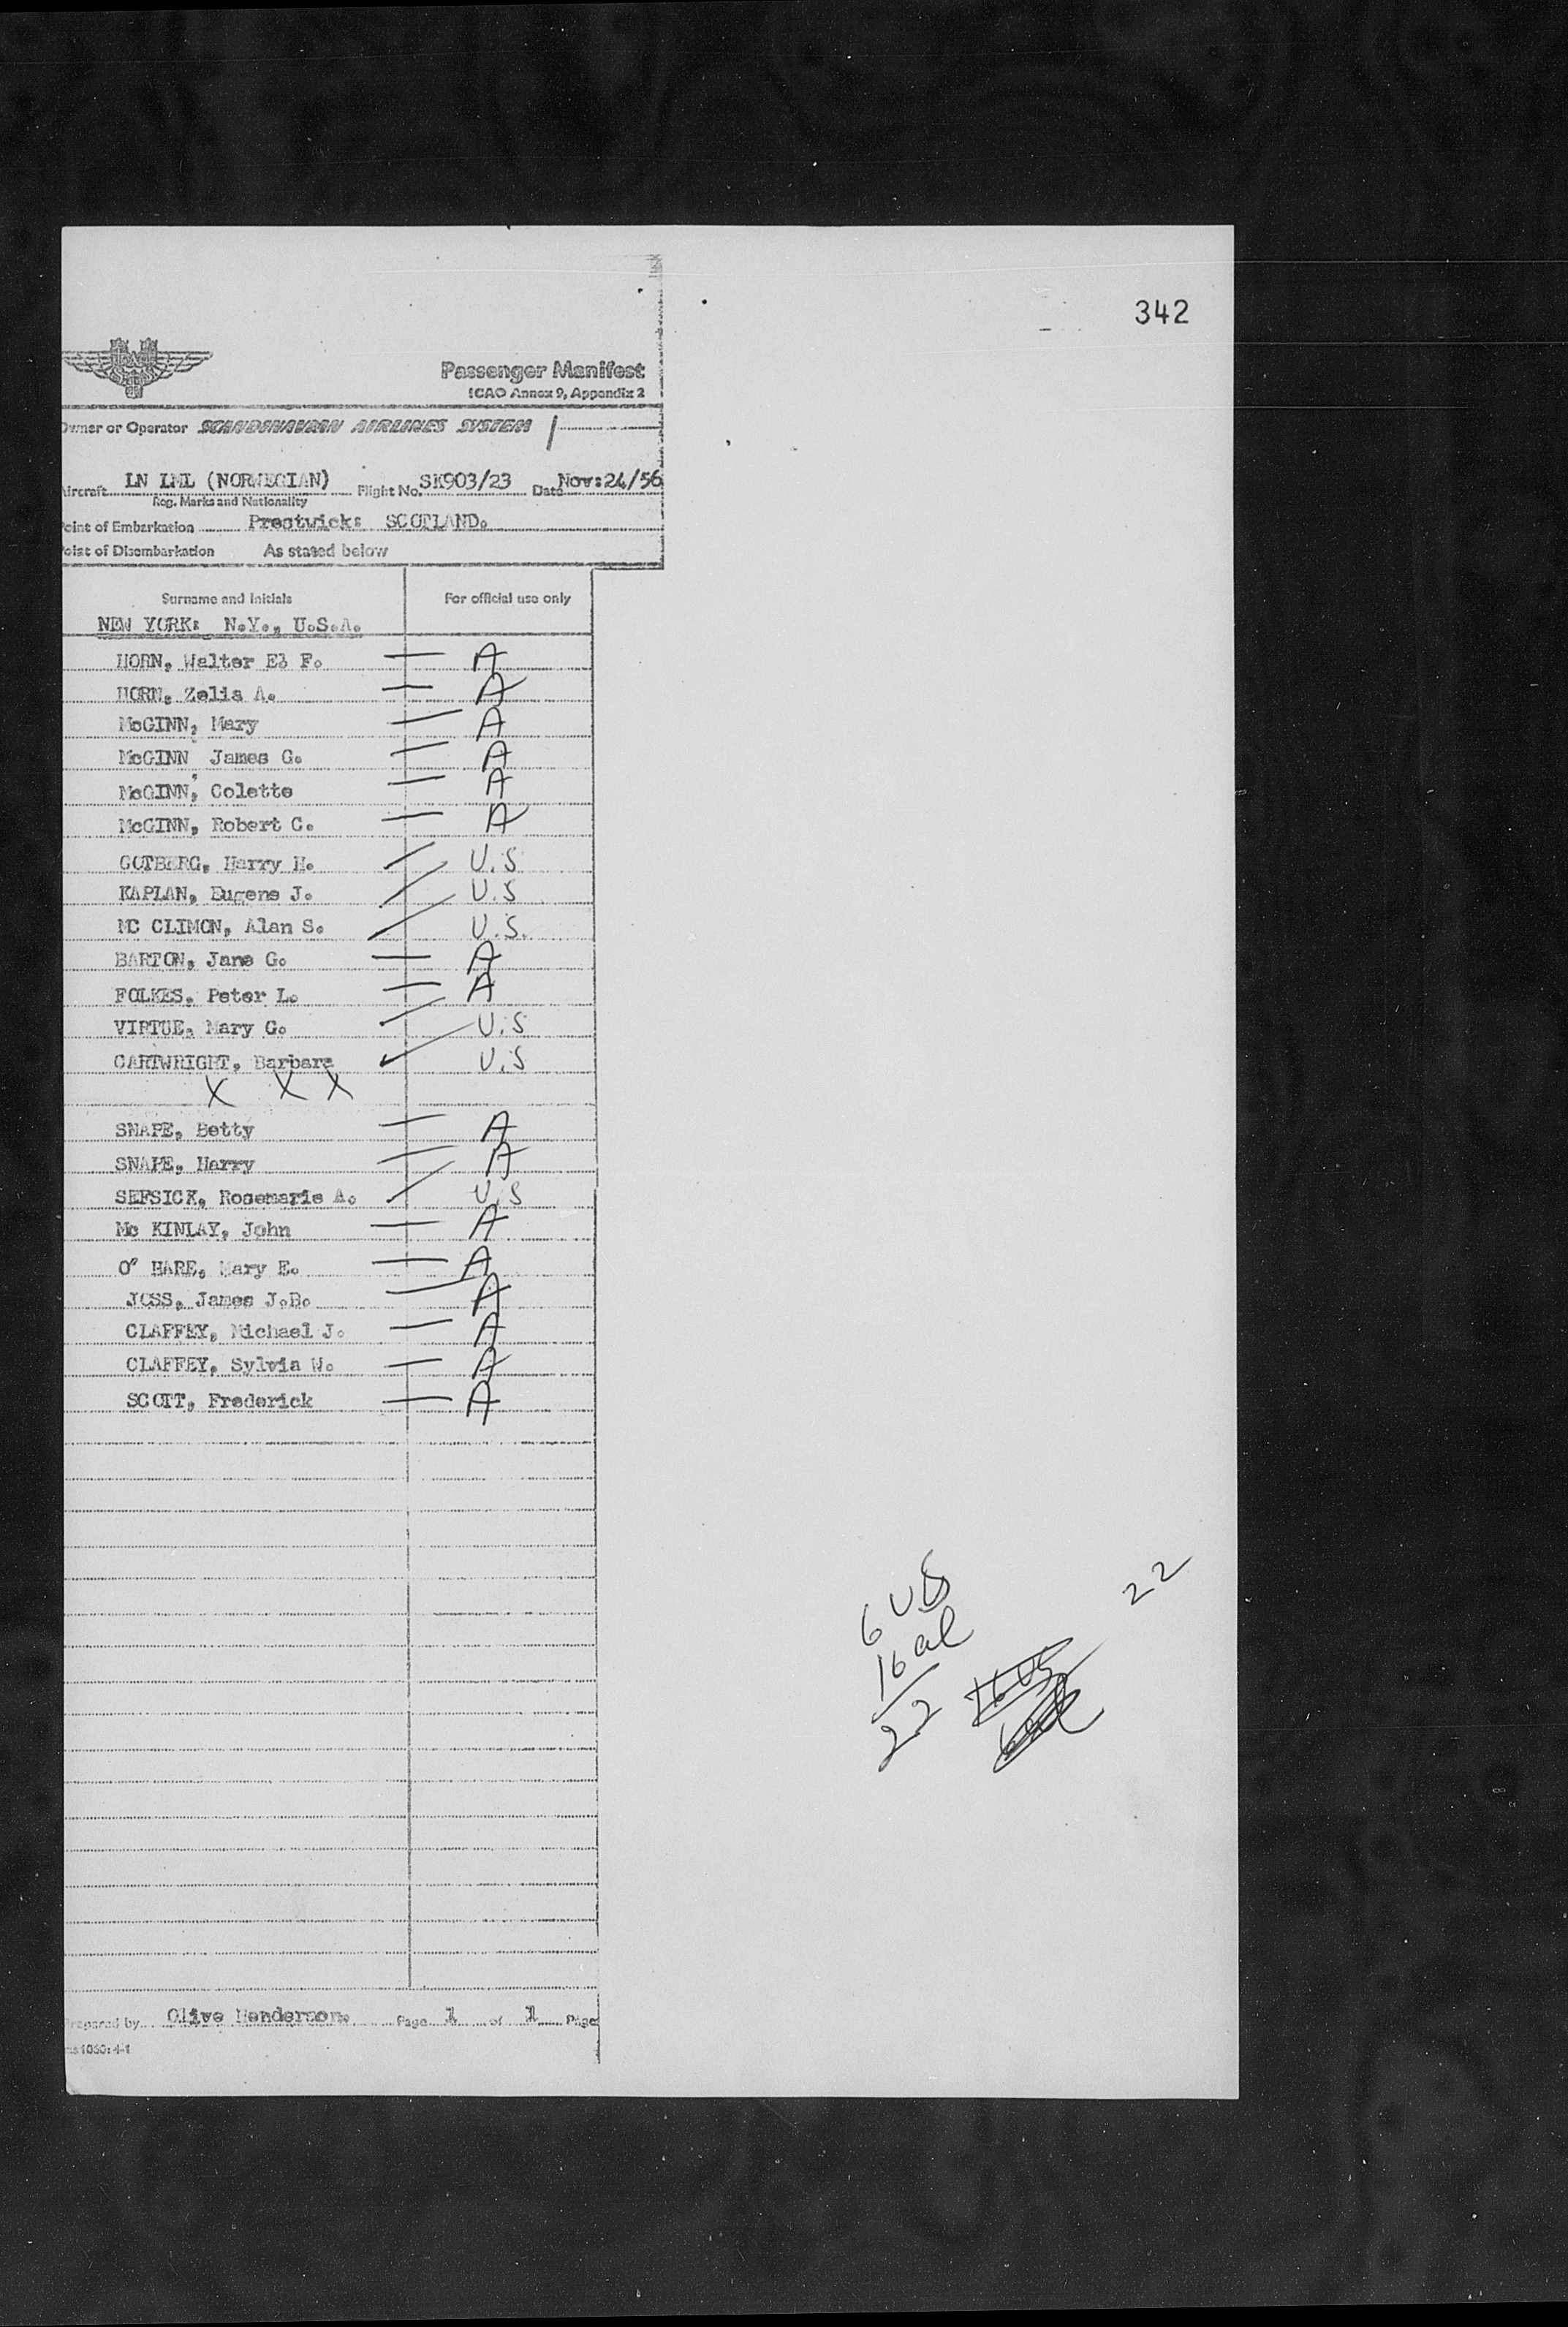 342
Passenger Manifest
ICAO Annex 9, Appendix 2
Owner or Operator SCANDINAVIAN AIRLINES SYSTEM
Aircraft LN LML (NORWEGIAN) Flight No. SK903/23 Date Nov:24/56
Reg. Marks and Nationality
Point of Embarkation Prestwick: SCOTLAND.
Point of Disembarkation As stated below
Surname and Initials For official use only
NEW YORK: N.Y., U.S.A.
HORN, Walter E) F. — A
HORN, Zelia A. — A
McGINN, Mary — A
McGINN, James G. — A
McGINN, Colette — A
McGINN, Robert C. — A
GOTBERG, Harry H. U.S
KAPLAN, Eugene J. U.S
MC CLIMON, Alan S. U.S.
BARTON, Jane G. — A
FOLKES, Peter L. — A
VIRTUE, Mary G. U.S
CARTWRIGHT, Barbara U.S
X X X
SNAPE, Betty — A
SNAPE, Harry — A
SEFSICK, Rosemarie A. U.S
Mc KINLAY, John — A
O' HARE, Mary E. — A
JOSS, James J.B. — A
CLAFFEY, Michael J. — A
CLAFFEY, Sylvia W. — A
SCOTT, Frederick — A
6 US
16 al
22
16 US
22
Prepared by Olive Henderson. Page 1 of 1 Page
1030:4-1